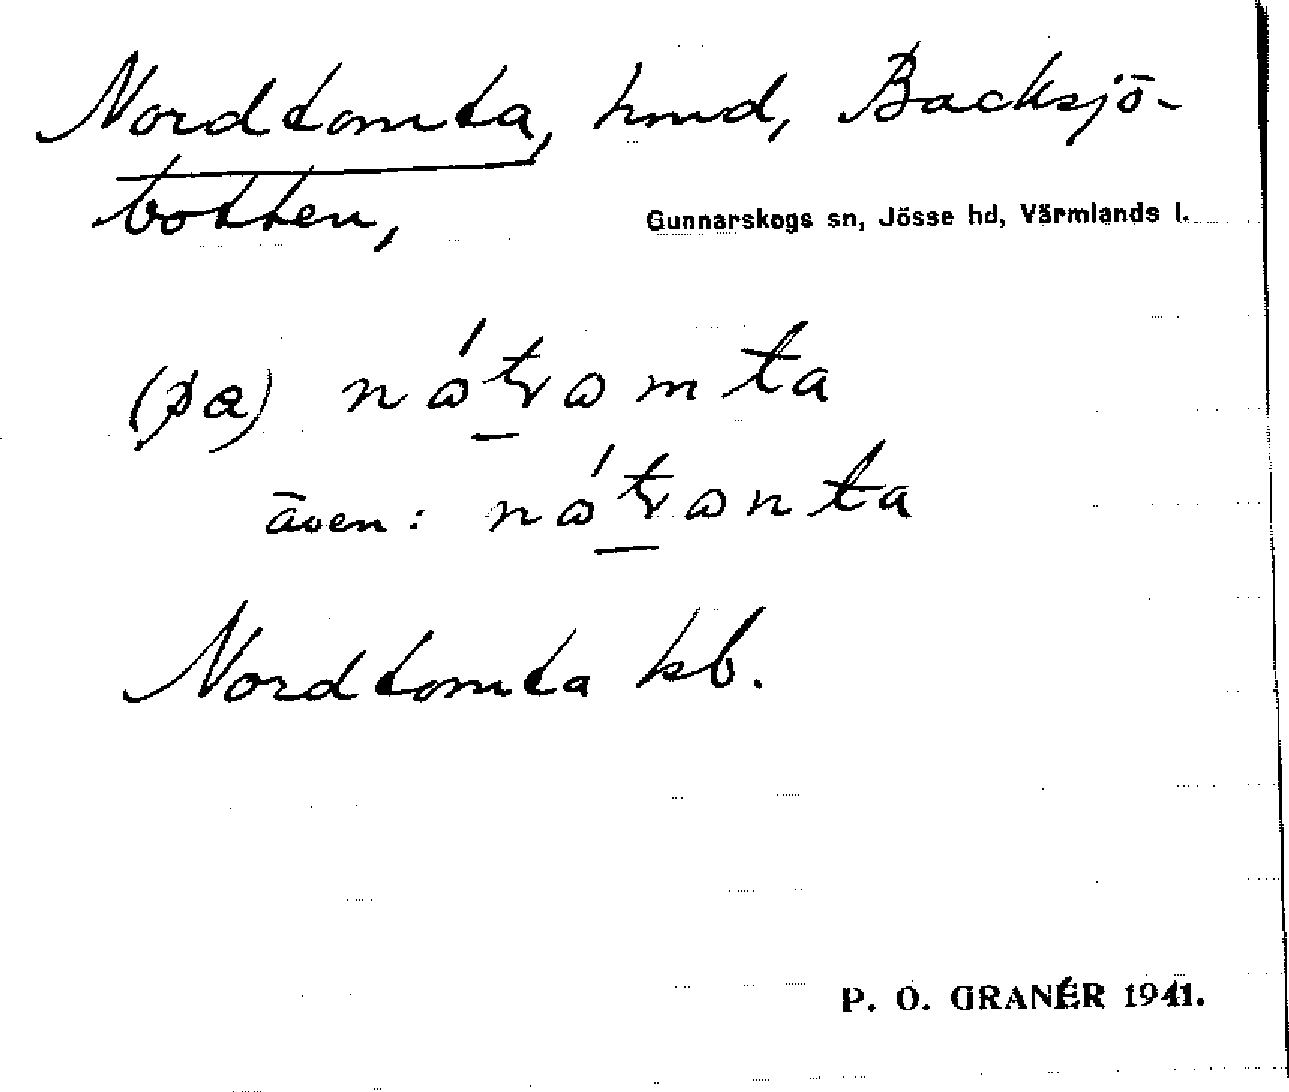 Nordtomta, hmd, Backsjö-
botten,
Gunnarskogs sn, Jösse hd, Värmlands l.
(pa) nátramta
även: nátranta
Nordtomta kb.
P. O. GRANÉR 1941.